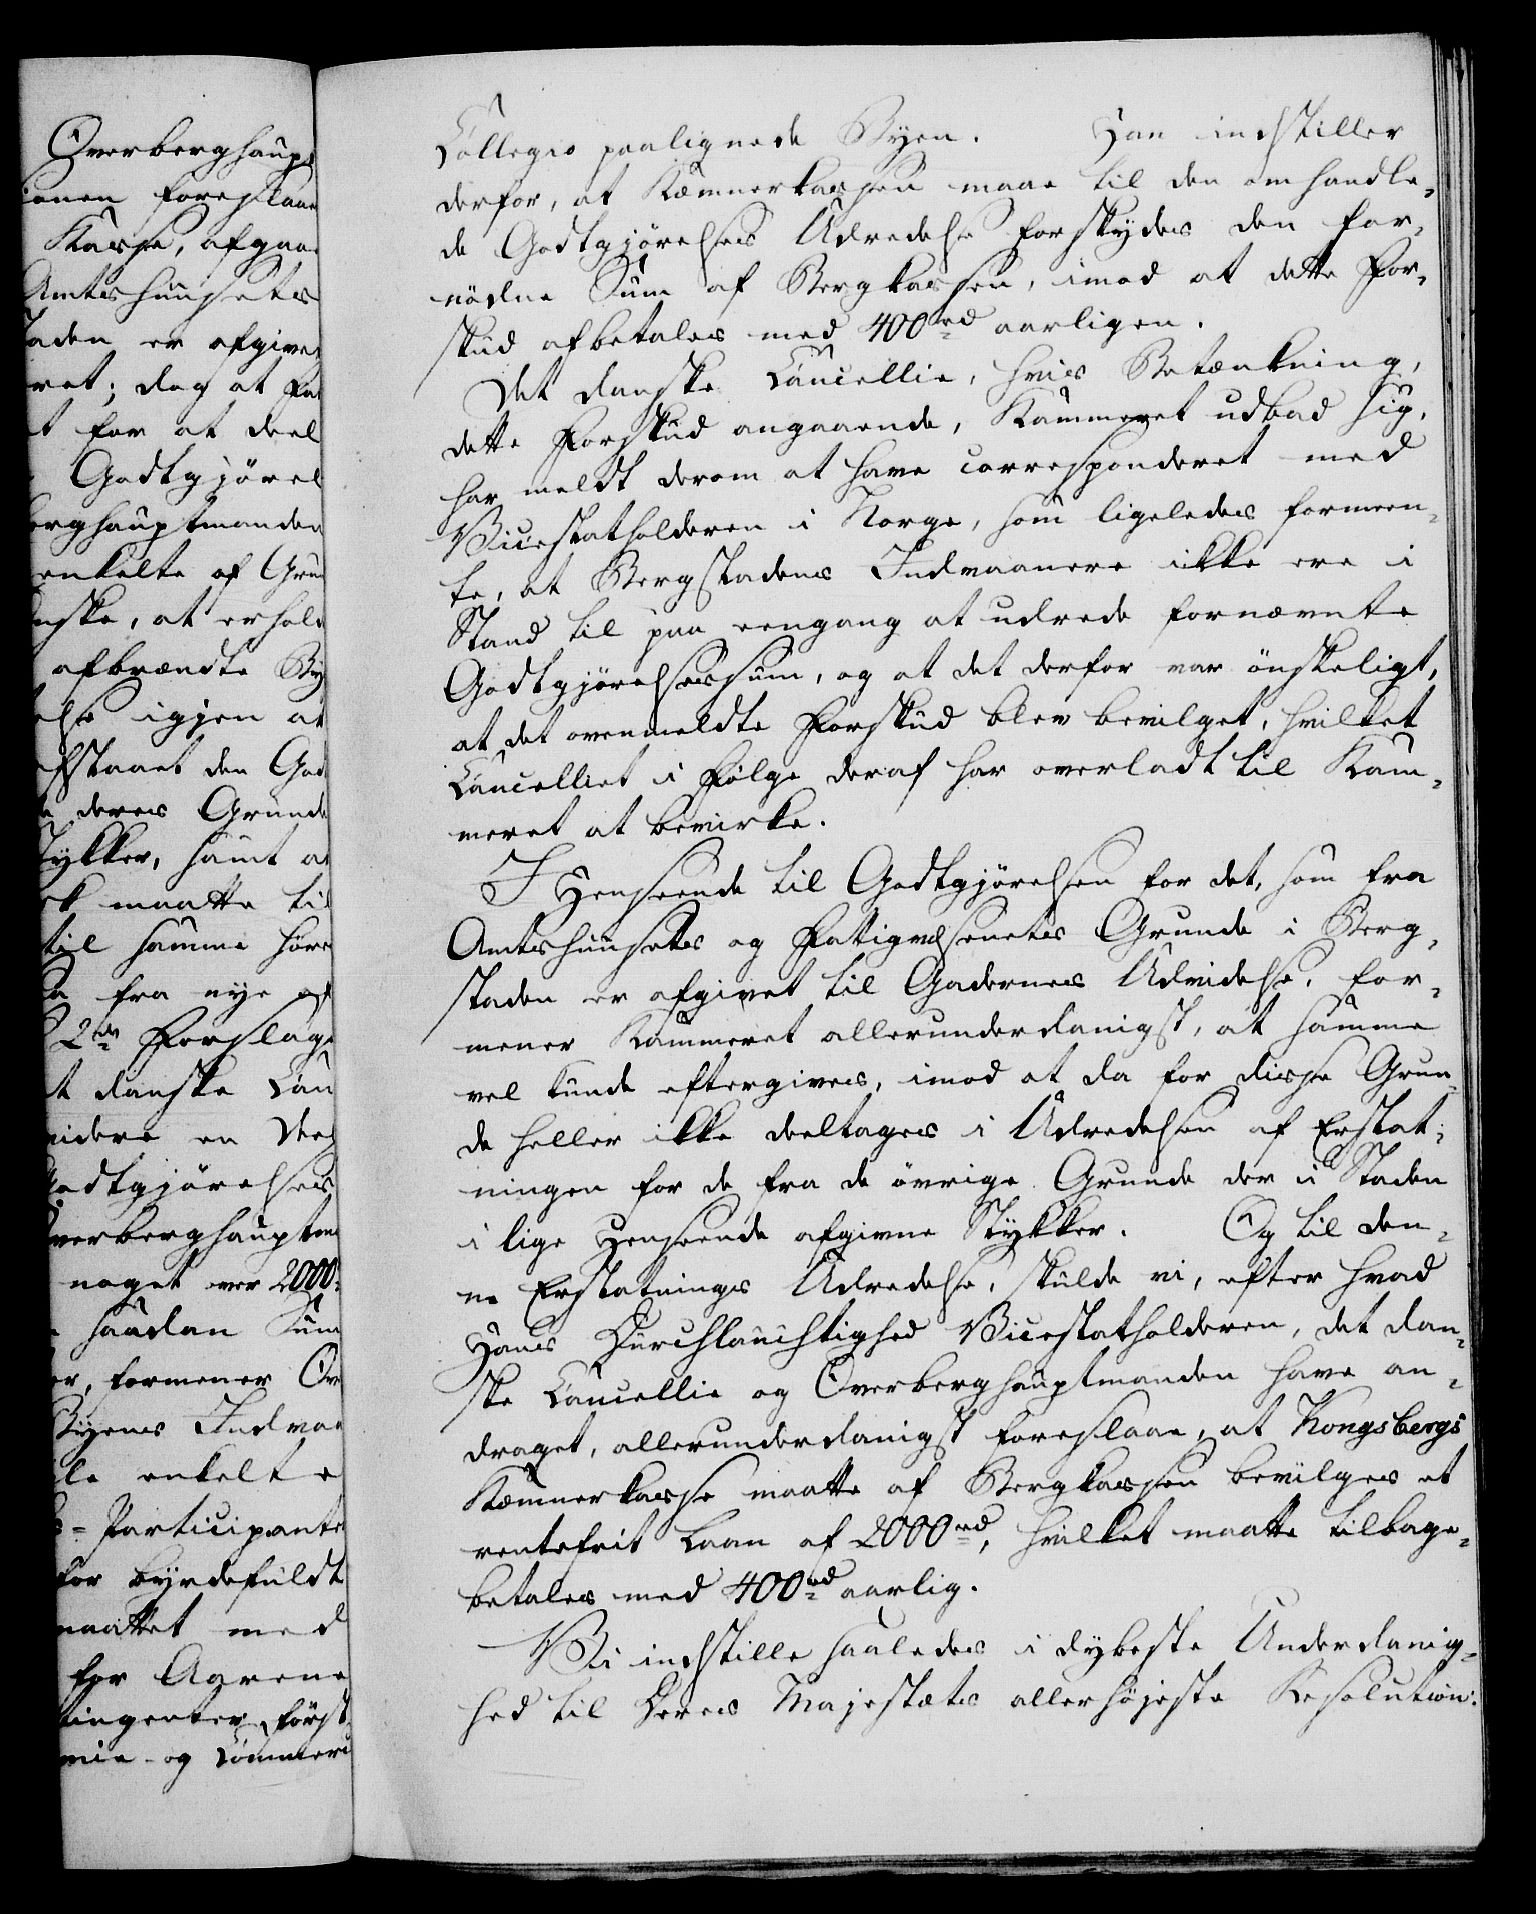 Overberghaup
ionen foreslaae
Kasse, afgaa
Amtshuusets
taden er afgivet
ret; dog at Fa
t for at deel
Godtgjörel
berghauptmanden
enkelte af Grun
nske, at erhold
afbrændte By
else igjen at
estaaet den God
deres Grunde
tykker, samt a
k maatte til
til samme höre
fra nye af
2den Forslag
t danske Can
videre en Deel
Godtgjörelses
verberghauptm
noget over 2000
saadan Sum
er, formener Ov
Byens Indvaa
le enkelte
s-Participante
for byrdefuldt
maattet med
for Agrene
tingenter först
mie- og Commerce
Collegio paalignede Byen. Han indstiller
derfor, at Kæmnerkassen maae til den omhandle-
de Godtgjörelses Udredelse forskydes den for-
nödne Sum af Bergkassen, imod at dette For-
skud afbetales med 400rd aarligen.
Det danske Cancellie, hvis Betænkning,
dette Forskud angaaende, Kammeret udbad sig,
har meldt derom at have correspondéret med
Vicestatholderen i Norge, som ligeledes formeen-
te, at Bergstadens Indvaanere ikke ere i
Stand til paa eengang at udrede fornævnte
Godtgjörelsessum, og at det derfor var önskeligt,
at det ovenmeldte Forskud blev bevilget, hvilket
Cancelliet i Fölge deraf har overladt til Kam-
meret at bevirke.
I Henseende til Godtgjörelsen for det, som fra
Amtshuusets og Fattigvæsenets Grunde i Berg-
staden er afgivet til Gadernes Udvidelse, for-
mener Kammeret allerunderdanigst, at samme
vel kunde eftergives, imod at da for disse Grun-
de heller ikke deeltages i Udredelsen af Erstat-
ningen for de fra de övrige Grunde der i Staden
i lige Henseende afgivne Stykker. Og til den-
ne Erstatnings Udredelse, skulde vi, efter hvad
Hans Durchlauchtighed Vicestatholderen, det dan-
ske Cancellie og Overberghauptmanden have an-
draget, allerunderdanigst foreslaae, at Kongsbergs
Kæmnerkasse maatte af Bergkassen bevilges et
rentefrit Laan af 2000rd, hvilket maatte tilbage-
betales med 400rd aarlig.
Vi indstille saaledes i dybeste Underdanig-
hed til Deres Majestæts allerhöjeste Resolution: